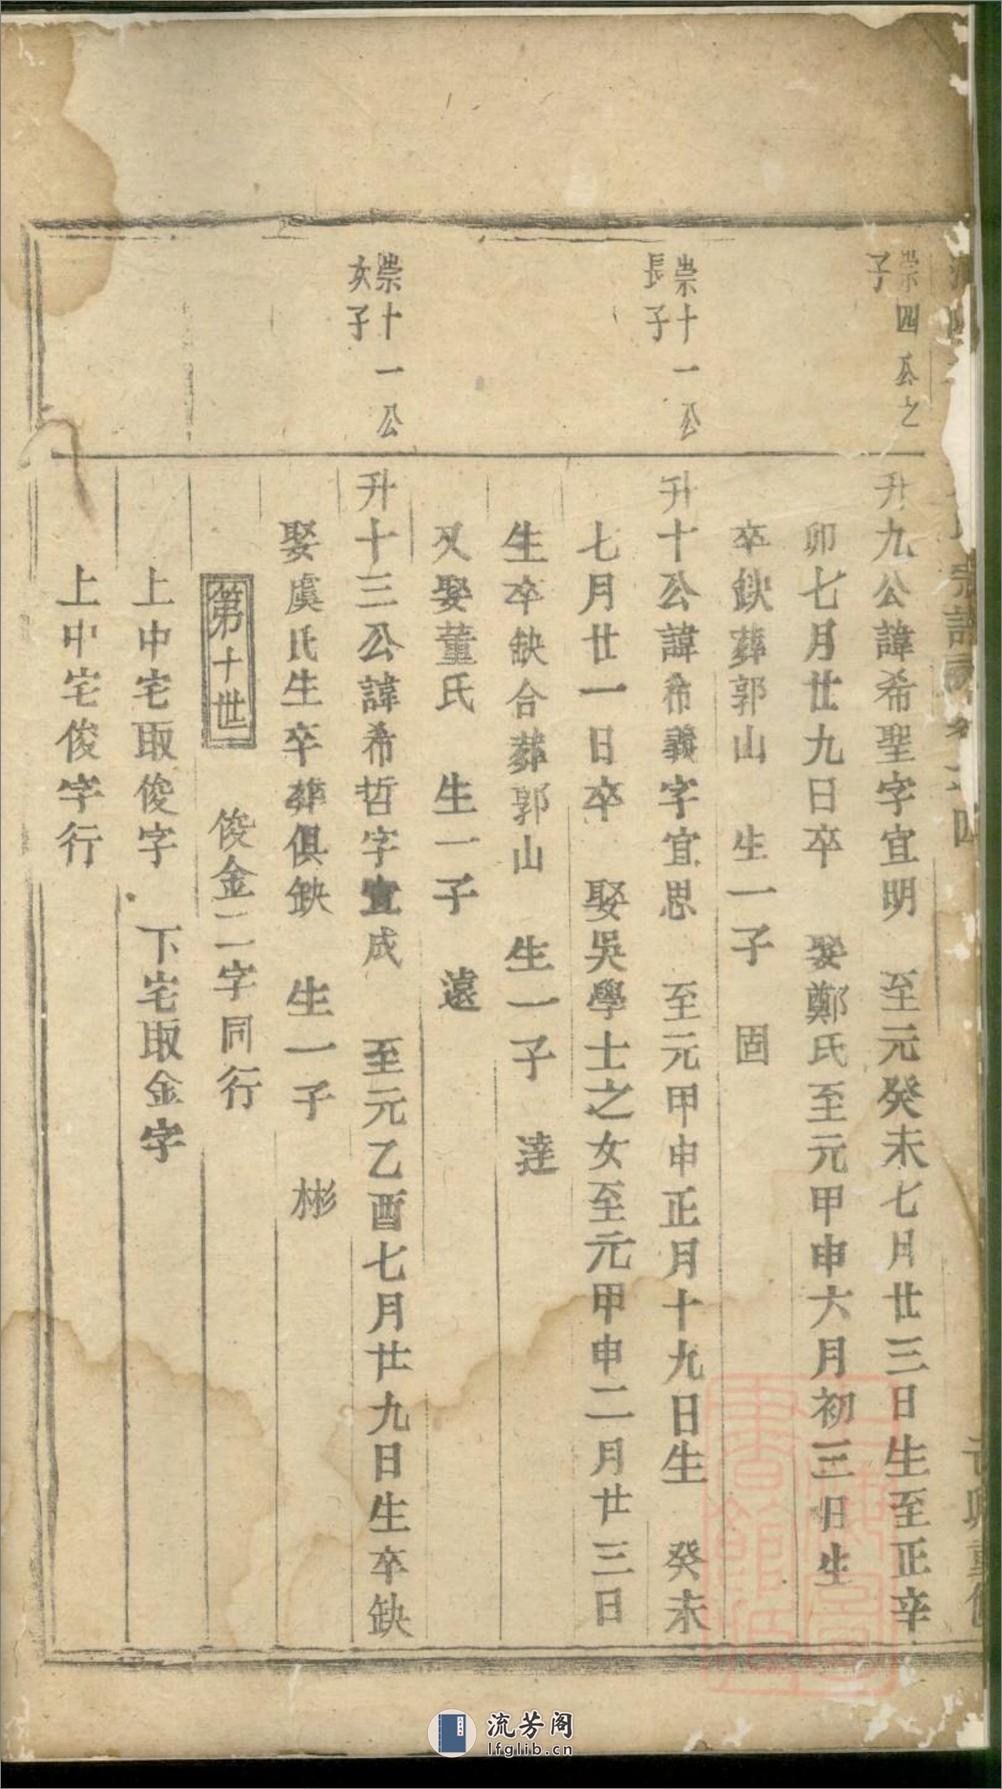 崇四公之
子
升九公諱希聖字宜明 至元癸未七月廿三日生至正辛
卯七月廿九日卒 娶鄭氏至元甲申六月初三日生
卒缺葬郭山 生一子 固
崇十一公
長子
升十公諱希義字宜思 至元甲申正月十九日生 癸未
七月廿一日卒 娶吳學士之女至元甲申二月廿三日
生卒缺合葬郭山 生一子 逹
又娶董氏 生一子 遠
崇十一公
次子
升十三公諱希哲字宜成 至元乙酉七月廿九日生卒缺
娶虞氏生卒葬俱缺 生一子 彬
第十世 俊金二字同行
上中宅取俊字 下宅取金字
上中宅俊字行
流芳阁
lfglib.cn